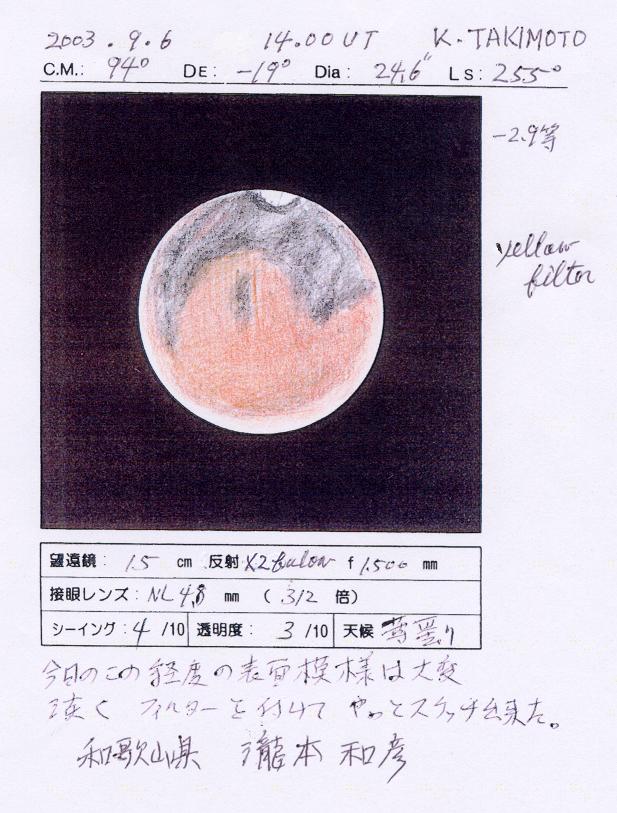 2003.9.6 14.00UT K.TAKIMOTO
C.M.: 94° DE: -19° Dia: 24.6″ Ls: 255°
-2.9等
yellow
filter
望遠鏡: 15 cm 反射 X2 f 1.500 mm
接眼レンズ: NL 4.8 mm ( 312 倍)
シーイング: 4 /10 透明度: 3 /10 天候
今日のこの経度の表面模様は大変
淡く フィルターを付けて やっとスケッチ出来た。
和歌山県 瀧本 和彦